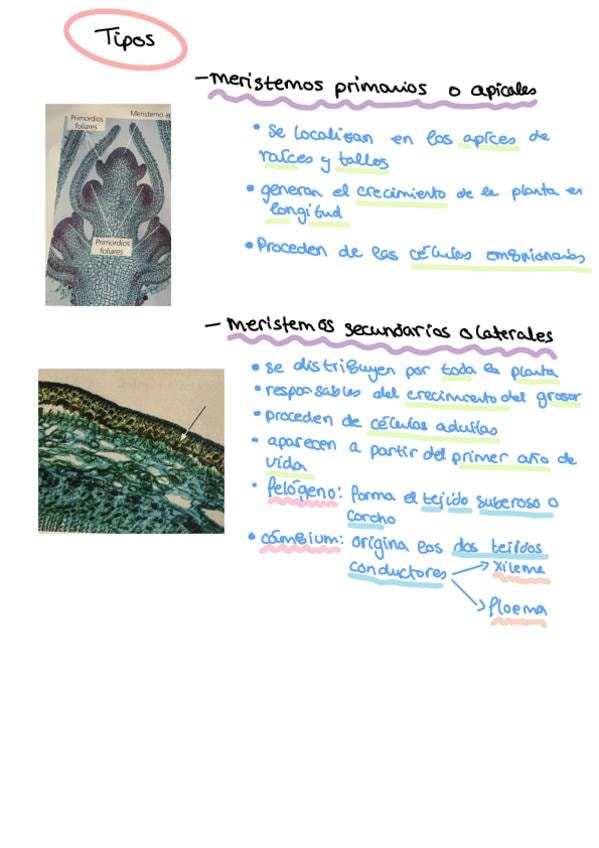 Tipos
- meristemos primarios o apicales
Primordios
foliares
Meristemo ap
Primordios
foliares
• se localizan en los apices de
raíces y tallos
• generan el crecimiento de la planta en
longitud
• Proceden de las células embrionarias
- meristemos secundarios o laterales
• se distribuyen por toda la planta
• responsables del crecimiento del grosor
• proceden de células adultas
• aparecen a partir del primer año de
vida
• felógeno: forma el tejido suberoso o
corcho
• cámbium: origina los dos tejidos
conductores → xilema
→ floema